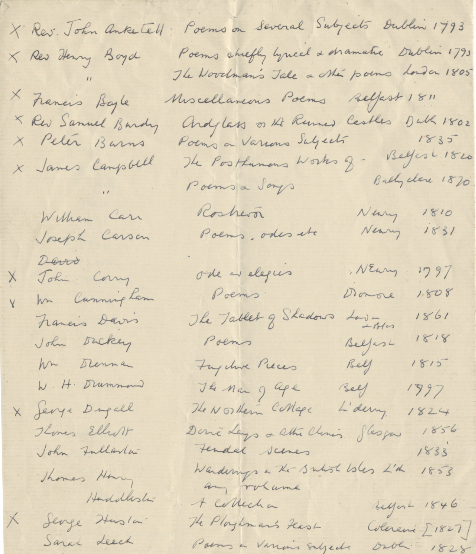 X Rev. John Anketell Poems on Several Subjects Dublin 1793
X Rev Henry Boyd Poems chiefly lyrical & dramatic Dublin 1793
" The Woodman's Tale & other poems London 1805
X Francis Boyle Miscellaneous Poems Belfast 1811
X Rev Samuel Burdy Ardglass or the Ruined Castles Dub 1802
X Peter Burns Poems on Various Subjects 1835
X James Campbell The Posthumous Works of Belfast 1820
" Poems & Songs Ballyclare 1870
William Carr Rostrevor Newry 1810
Joseph Carson Poems, odes etc Newry 1831
Davis
X John Corry odes & elegies Newry 1797
X Wm Cunningham Poems Dromore 1808
Francis Davis The Tablet of Shadows London 1861
John Dickey Poems Belfast 1818
Wm Drennan Fugitive Pieces Belf 1815
W. H. Drummond The Man of Age Belf 1797
X George Dugall The Northern Cottage L'derry 1824
Thomas Elliott Doric Lays & Attic Chimes Glasgow 1856
John Fullarton Feudal Scenes 1833
Thomas Henry Wanderings in the British Isles L'dn 1853
volume
Huddleston A Collection Belfast 1846
X George The Ploughman's Coleraine [1827]
Sarah Leech Poems on Various Subjects Dublin 1828